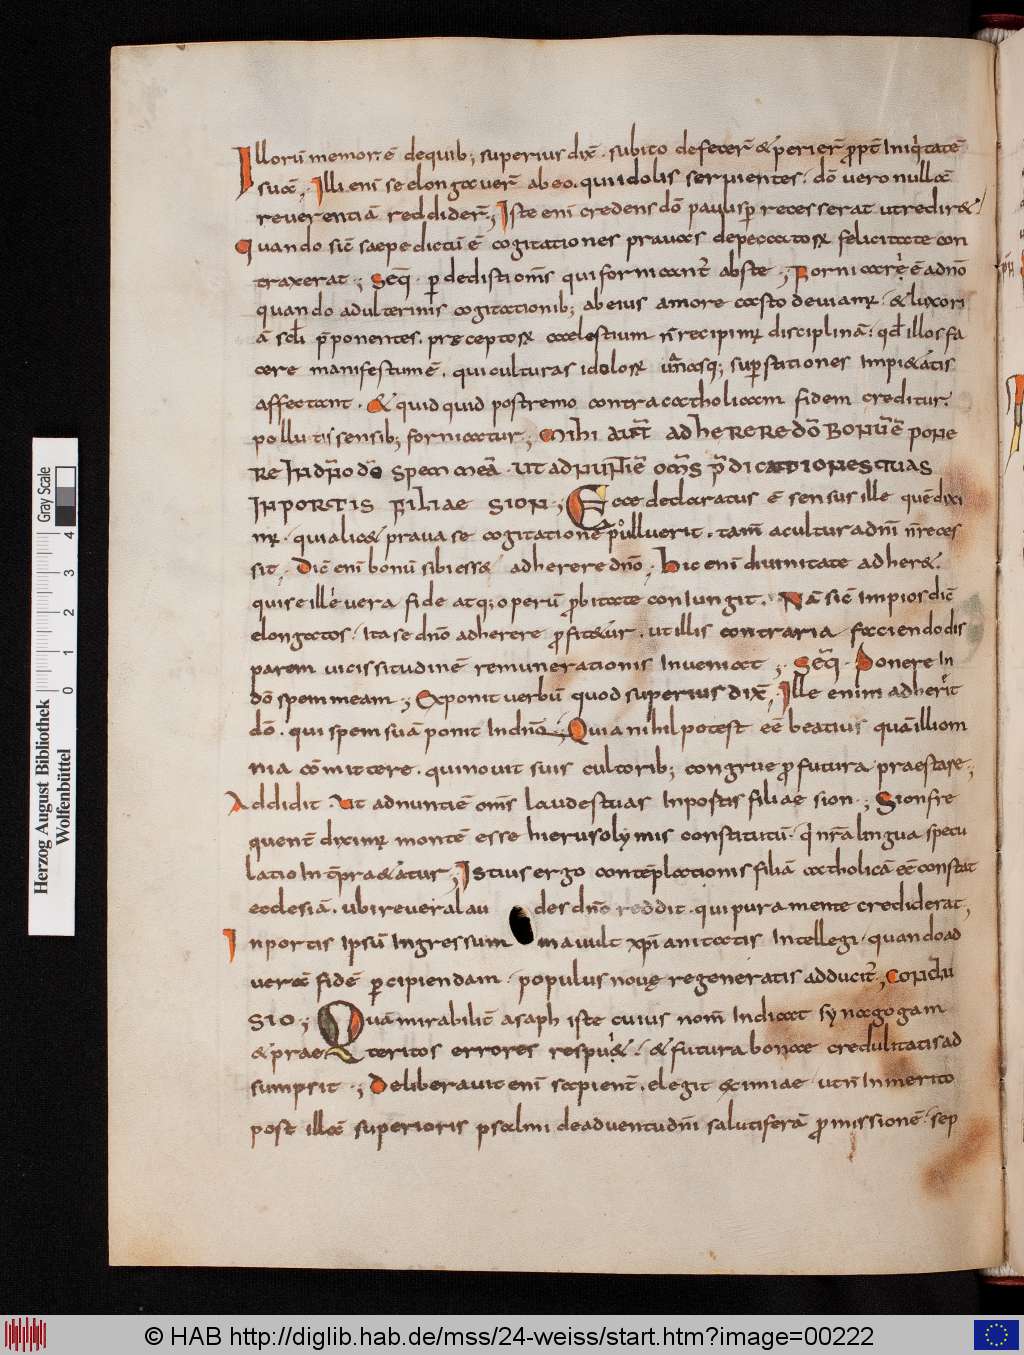 Illorū memor ē dequib; superius dix̄ subito defecer̄ & perier̄ ꝓpt̄ Iniq̇tatē
suā; Illi enī se elongaver̄ abeo. qui idolis serpientes. dō vero nullā
reverentiā reddider̄; Iste enī credens dō pauusꝑ recesserat ut redir&
Quando sic̄ saepe dictū ē cogitationes pravas depeccatoꝝ felicitate con
traxerat; Seq̄. ꝑdedisti om̄s qui fornicant̄ abs te; Fornicare ē adnō
quando adulterinis cogitationib; ab eius amore casto deviamꝰ. & luxori
ā scl̄i p̄ponentes. pręceptoꝝ caelestium n̄ recipimꝰ disciplinā; qd̄ illos fa
cere manifestum ē. qui culturas idoloꝝ um̄asq; suꝑstationes Impi&atis
affectant. & quid quid postremo contra catholicam fidem creditur.
pollutis sensib; fornicatur; Mihi aut̄ adherere dō bonū ē pone
re In dn̄o dō spem meā. ut adnuntiē om̄s p̄dicationes tuas
In portis filiae sion; Ecce declaratus ē sensus ille quē dixi
mꝰ. qui aliq& prava se cogitatione polluerit. tam̄ a cultura dn̄i n̄ reces
sit. Dic̄ enī bonū sibi ess& adherere dn̄o; Hic enī divinitate adher&.
qui se illi vera fide atq; operū ꝓbitate conIungit. Nā sic̄ Impios dic̄
elongatos. Ita se dn̄o adherere ꝓfit&ur. ut illis contraria faciendo dis
parem vicissitudinē remunerationis Inveniat; Seq̄. Ponere In
dō spem meam; Exponit verbū quod superius dix̄. Ille enim adherit
dō. qui spem suā ponit In dn̄o; Quia nihil potest eē beatius quā illi om
nia cōmittere. qui novit suis cultorib; congrue ꝓfutura praestare;
Addidit. Ut adnuntiē om̄s laudes tuas In portis filiae sion; Sion fre
quent̄ diximꝰ montē esse hierusolymis constitutū. q̇ nr̄a lingua specu
latio Int̄pra&atur; Istius ergo contēplationis filiā catholicā eē constat
ecclesiā. ubi revera lau des dn̄o reddit. qui pura mente crediderat,
In portis Ipsū Ingressum mavult xp̄ianitatis Intellegi. quando ad
verā fidē ꝑcipiendam. populus novę regeneratis adducit̄; Conclu
sio; Quā mirabilit̄ asaph iste cuius nom̄ Indicat synagogam
& praeteritos errores respu&. & futura bonae credulitatis ad
sumpsit; Deliberavit enī sapient̄. elegit eximiae ut n̄ Inmerito
post illā superioris psalmi de adventu dn̄i salutiferā ꝓmissionē. sep
Herzog August Bibliothek
Wolfenbüttel
Gray Scale
0 1 2 3 4
© HAB http://diglib.hab.de/mss/24-weiss/start.htm?image=00222